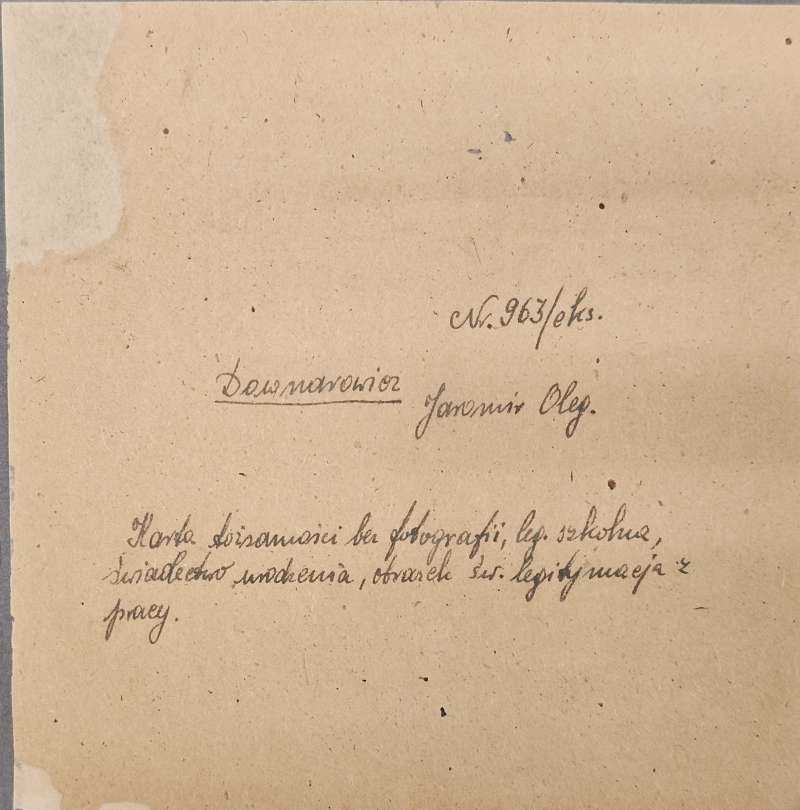 Nr. 963/eks.
Downarowicz
Jaromir Oleg.
Karta tożsamości bez fotografii, leg. szkolna,
świadectwo urodzenia, obrazek św. legitymacja z
pracy.